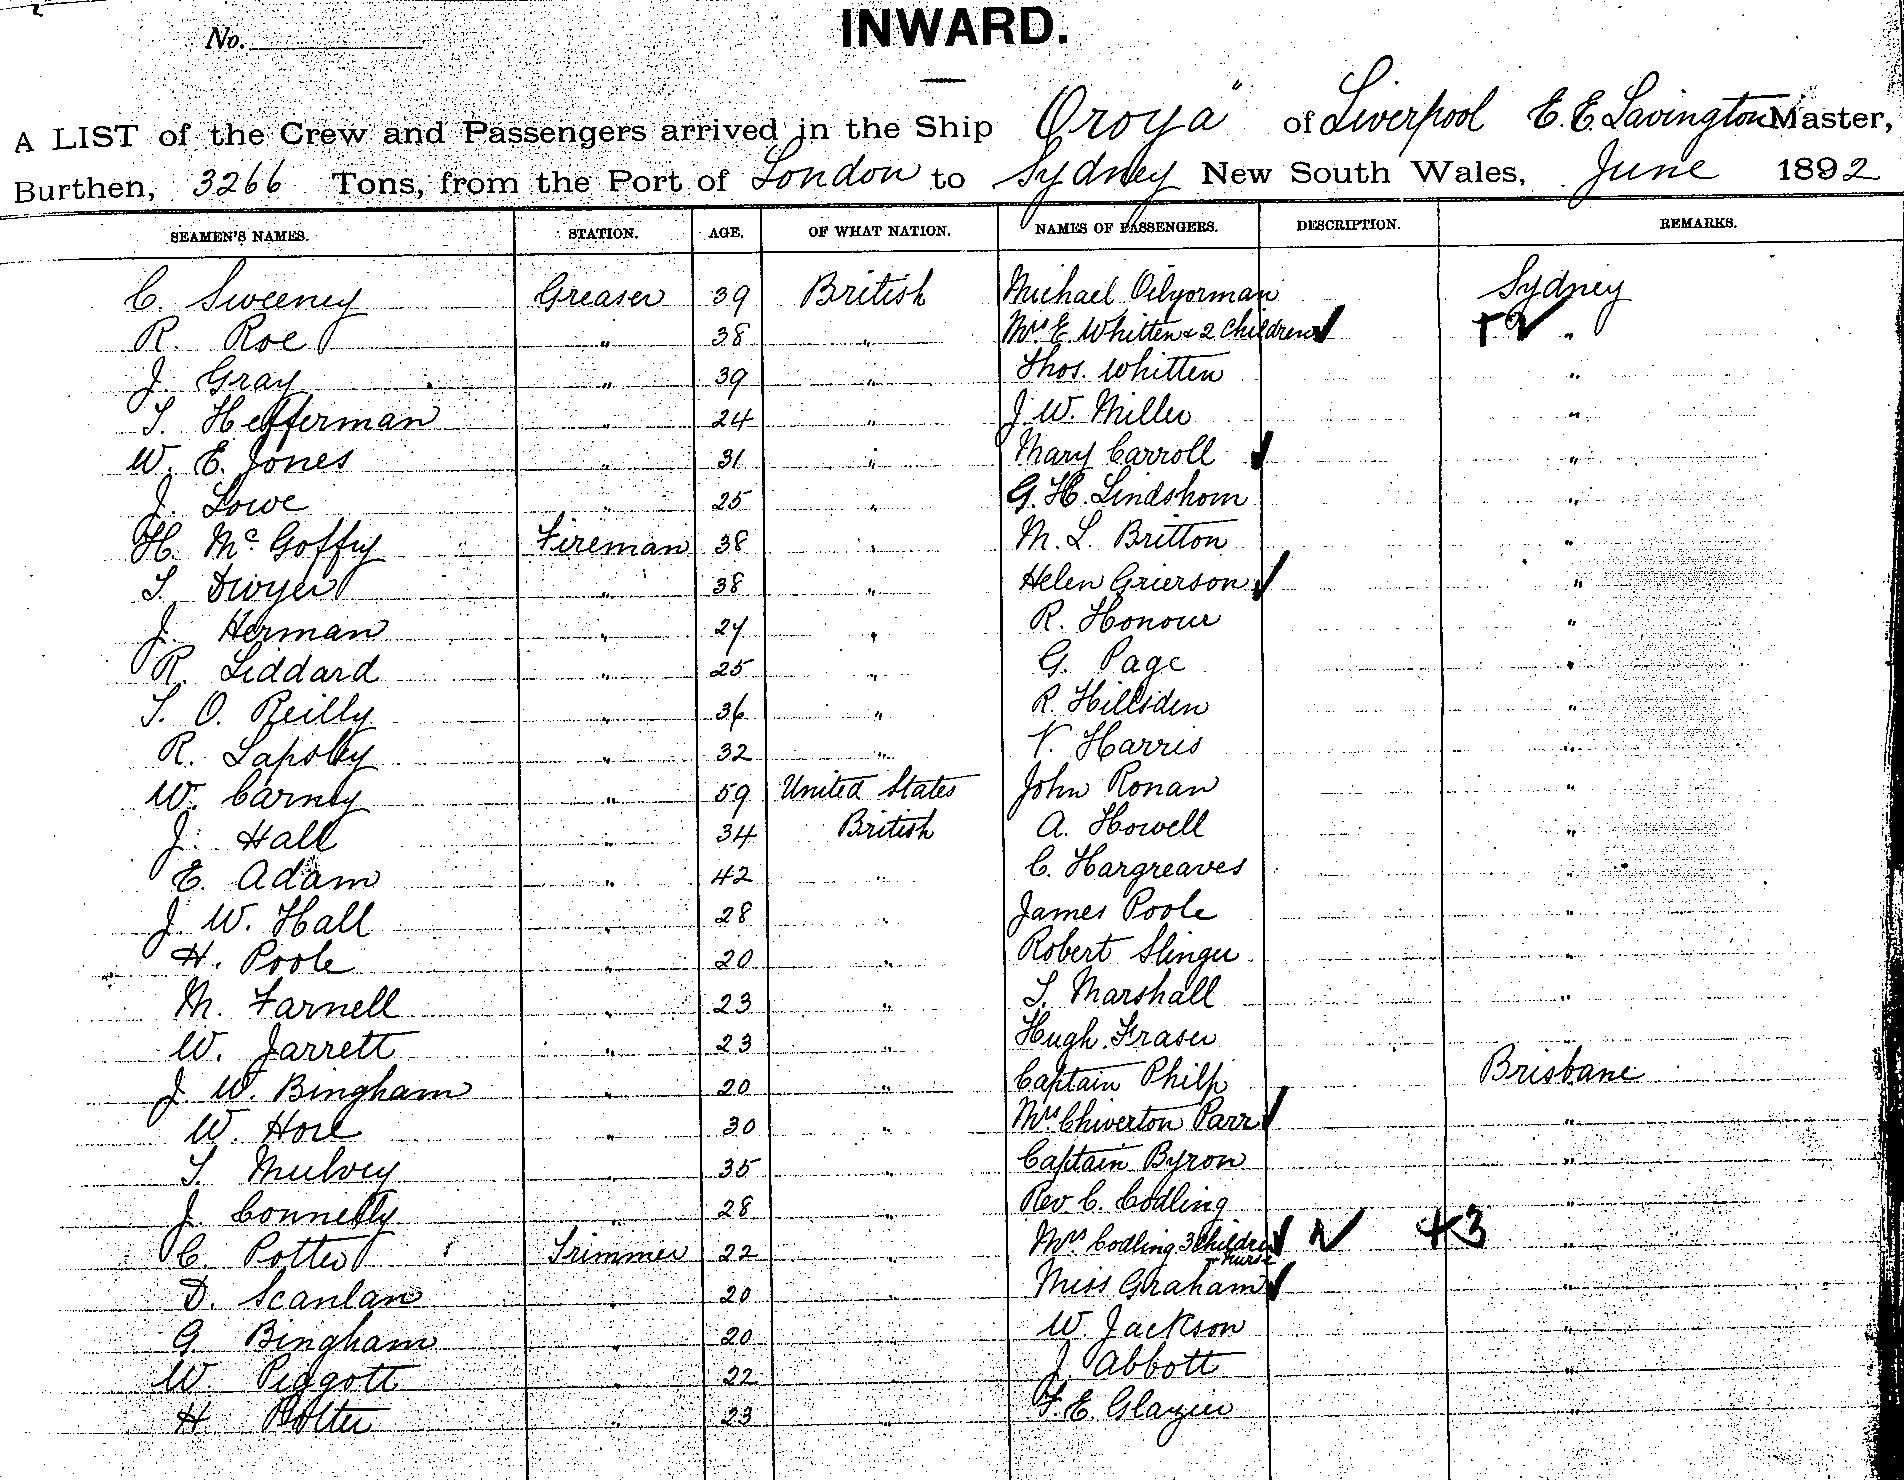 No.
INWARD.
A LIST of the Crew and Passengers arrived in the Ship "Oroya" of Liverpool E. E. Lavington Master,
Burthen, 3266 Tons, from the Port of London to Sydney New South Wales, June 1892
SEAMEN'S NAMES. STATION. AGE. OF WHAT NATION. NAMES OF PASSENGERS. DESCRIPTION. REMARKS.
C. Sweeney Greaser 39 British Michael Sydney
R. Roe " 38 " Mrs E. Whitten & 2 Children "
J. Gray " 39 " Thos. Whitten "
T. Hefferman " 24 " J. W. Miller "
W. E. Jones " 31 " Mary Carroll "
J. Lowe " 25 " G. H. Lindshom "
H. McGoffy Fireman 38 " M. L. Britton "
T. Dwyer " 38 " Helen Grierson "
J. Herman " 24 " R. Honour "
R. Liddard " 25 " G. Page "
T. O. Reilly " 36 " R. Hillsden "
R. Lapsley " 32 " V. Harris "
W. Carney " 59 United States John Ronan "
J. Hall " 34 British A. Howell "
E. Adam " 42 " C. Hargreaves "
J. W. Hall " 28 " James Poole "
H. Poole " 20 " Robert Slinger "
M. Farnell " 23 " T. Marshall "
W. Jarrett " 23 " Hugh Fraser "
J. W. Bingham " 20 " Captain Philp Brisbane
W. Hore " 30 " Mrs Chiverton Parr "
T. Mulvey " 35 " Captain Byron "
J. Connelly " 28 " Rev C. Codling "
C. Potter Trimmer 22 " Mrs Codling 3 Children + Nurse +3
D. Scanlan " 20 " Miss Graham "
G. Bingham " 20 " W. Jackson "
W. Piggott " 22 " J. Abbott "
H. Potter " 23 " F. E. Glazier "